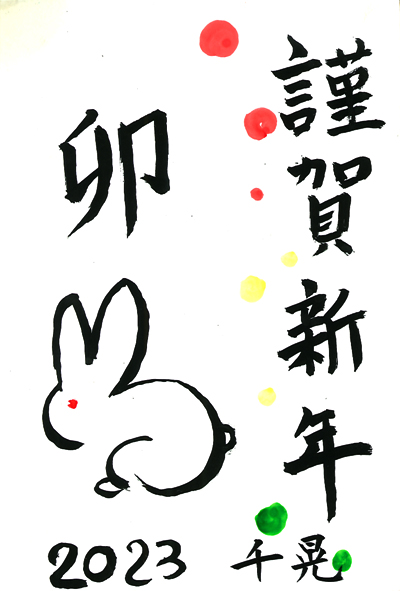 謹賀新年
千晃
卯
2023